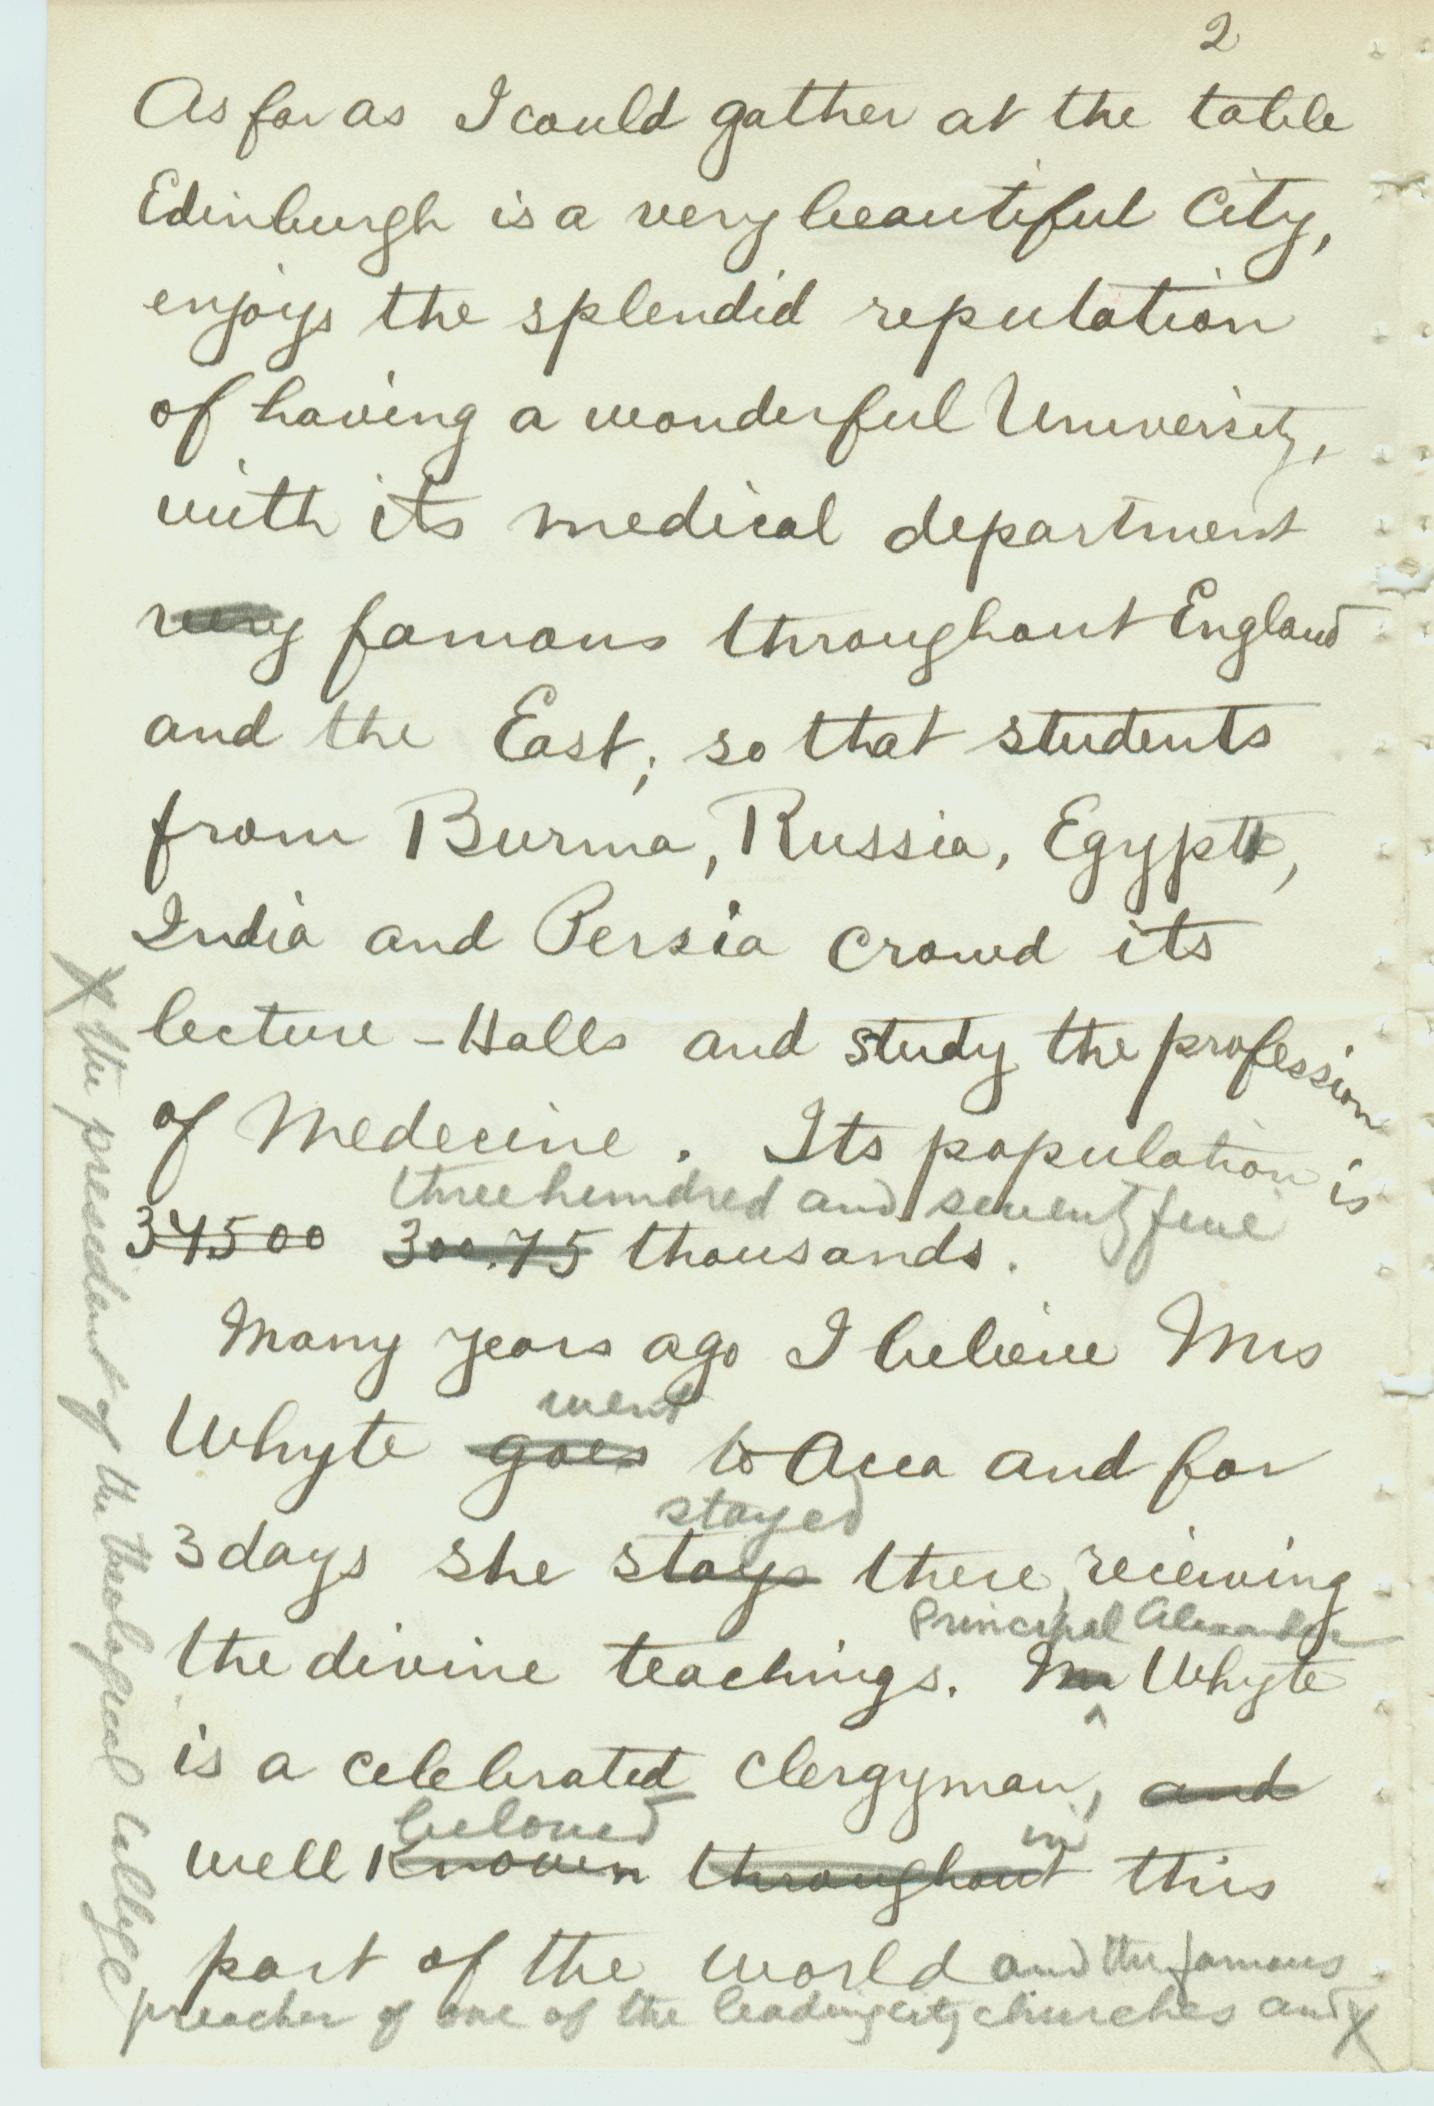 2
As far as I could gather at the table
Edinburgh is a very beautiful City,
enjoys the splendid reputation
of having a wonderful University,
with its medical department
very famous throughout England
and the East; so that students
from Burma, Russia, Egypt,
India and Persia crowd its
lecture-Halls and study the profession
of Medecine. Its population is
three hundred and seventy five
37500 300.75 thousands.
Many years ago I believe Mrs
went
Whyte goes to Acca and for
stayed
3 days she stays there, receiving
Principal Alexander
the divine teachings. Mr Whyte
is a celebrated clergyman, and
beloved in
well known throughout this
part of the world and the famous
preacher of one of the leading city churches and X
X the president of the Theological College